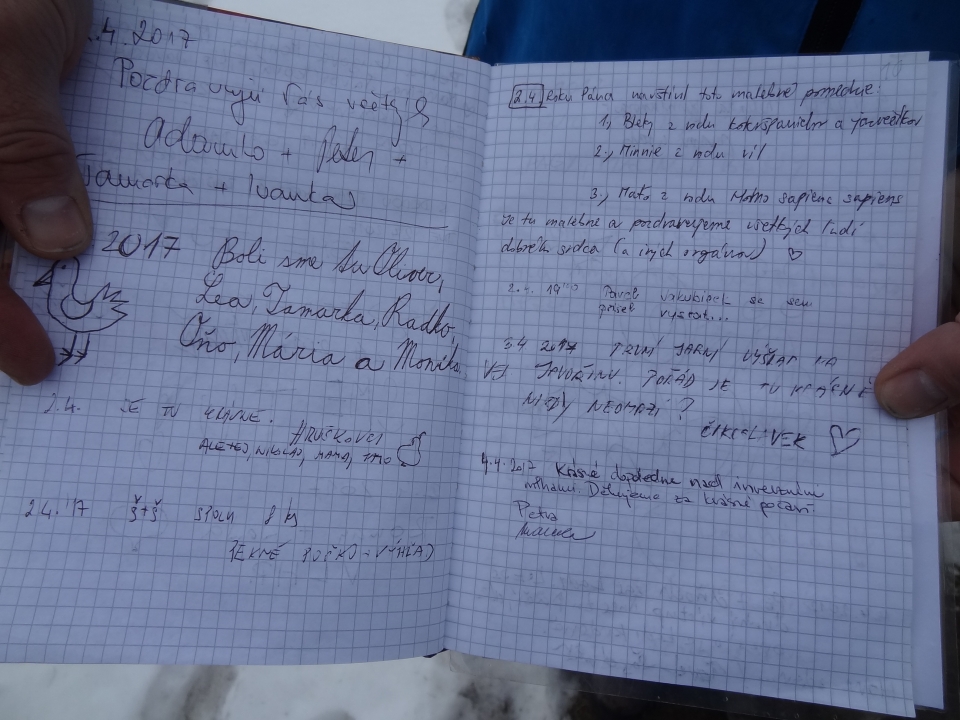 .4.2017
Pozdravujú Vás všetci
Adamko + Peter +
Tamarka + Ivanka
2017 Boli sme tu Oliver,
Lea, Tamarka, Radko,
Oňo, Mária a Monika
2.4. JE TU KRÁSNE.
HRUŠKOVCI
NIKOLAJ, MAMA, TATO
2.4.'17 Š+Š SPOLU
PEKNÉ VÝHĽAD
2.4. Roku Pána navštívil toto malebné pomedzie:
1., Bleky z rodu kokršpanielov a jazvečíkov
2., Minnie z rodu víl
3., Maťo z rodu Homo sapiens sapiens
Je tu malebne a pozdravujeme všetkých ľudí
dobrého srdca (a iných orgánov) ♡
2.4. 19:00 Pavel se sem
přišel
3.4 2017 PRVNÍ JARNÍ VÝŠLAP NA
VJ JAVOŘINU. POŘÁD JE TU KRÁSNĚ
NIKDY NEOMRZÍ?
♡
4.4.2017 Krásné dopoledne nad inverzním
mlhami. Děkujeme za krásné počasí
Petra